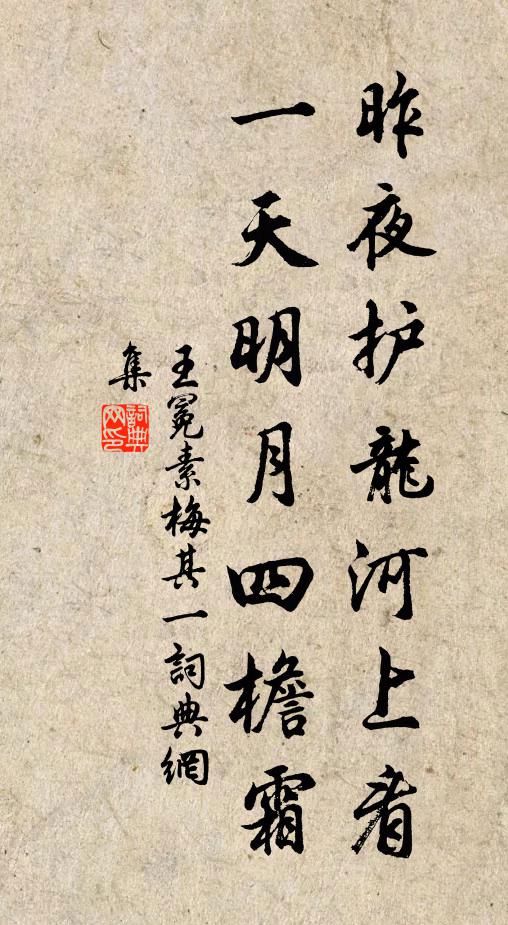 昨夜护龍河上看
一天明月四檐霜
王冕素梅其一詞典網
集
詞典網印